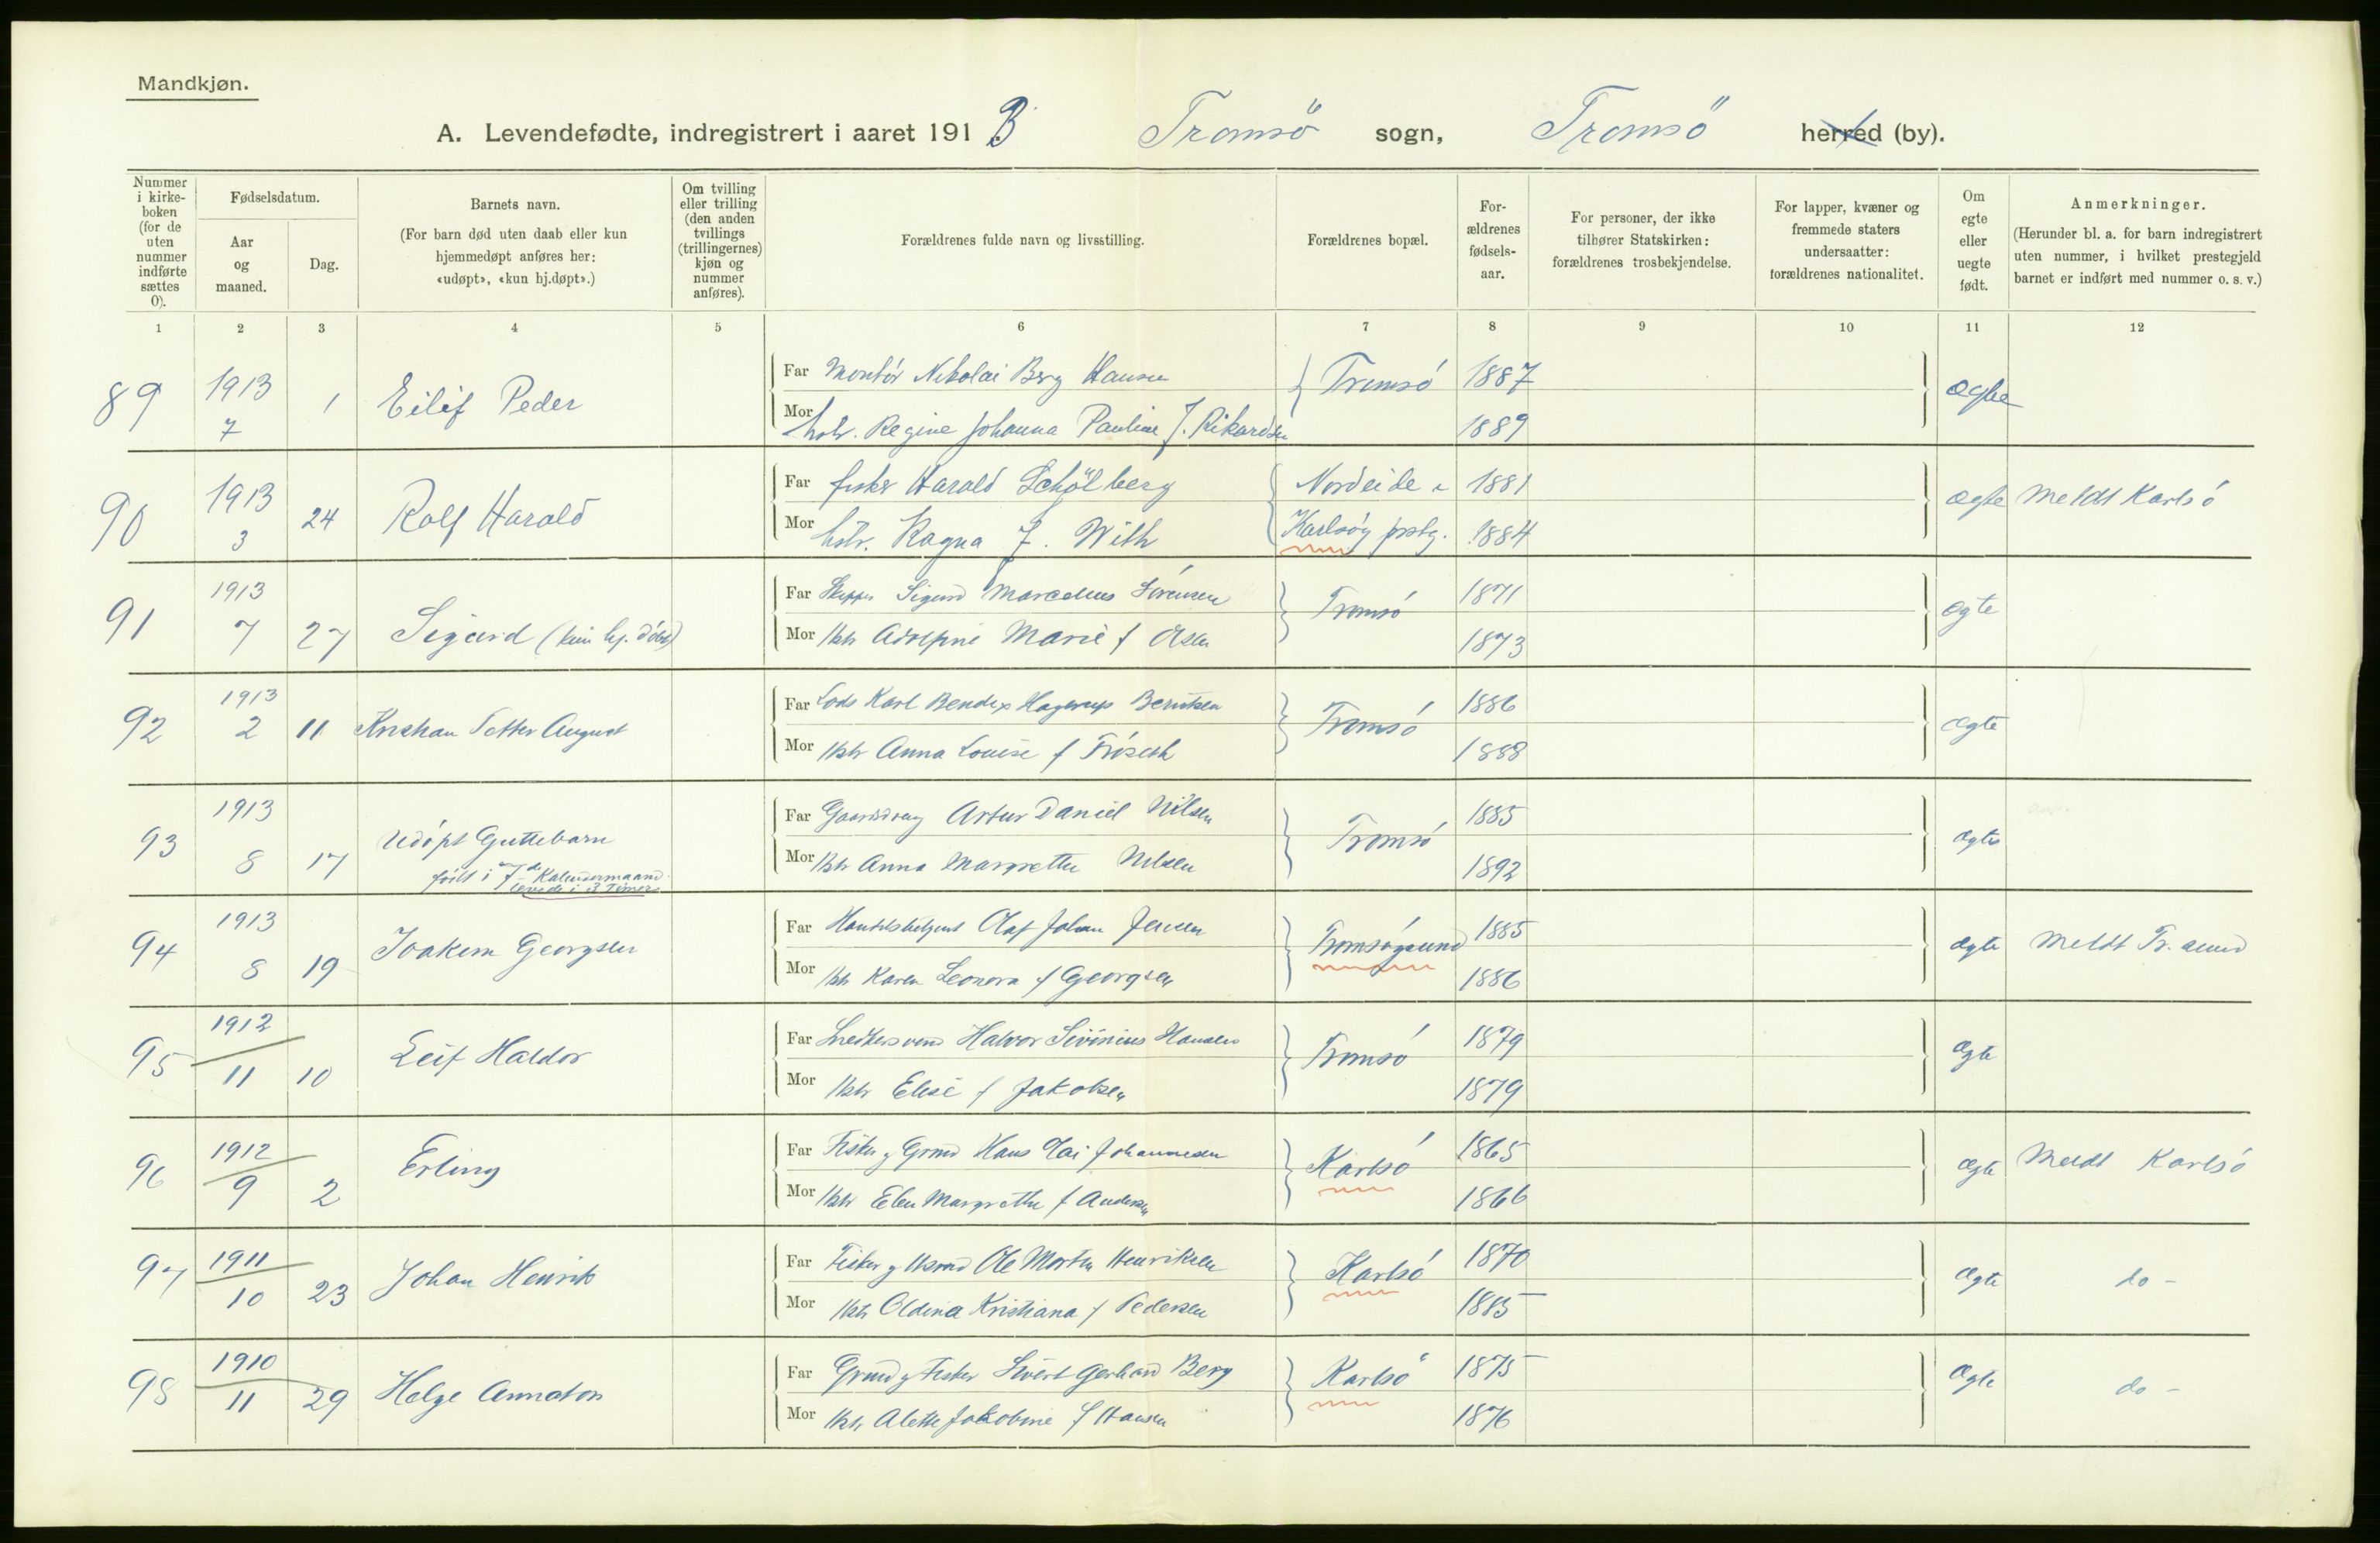 Mandkjøn.
A. Levendefødte, indregistrert i aaret 1913 Tromsö sogn, Tromsö herred (by).
Nummer i kirke-boken (for de uten nummer indførte sættes 0).
Fødselsdatum.
Aar og maaned.
Dag.
Barnets navn.
(For barn død uten daab eller kun hjemmedøpt anføres her: «udøpt», «kun hj.døpt».)
Om tvilling eller trilling (den anden tvillings (trillingernes) kjøn og nummer anføres).
Forældrenes fulde navn og livsstilling.
Forældrenes bopæl.
For-ældrenes fødsels-aar.
For personer, der ikke tilhører Statskirken: forældrenes trosbekjendelse.
For lapper, kvæner og fremmede staters undersaatter: forældrenes nationalitet.
Om egte eller uegte født.
Anmerkninger.
(Herunder bl. a. for barn indregistrert uten nummer, i hvilket prestegjeld barnet er indført med nummer o. s. v.)
1 2 3 4 5 6 7 8 9 10 11 12
89 1913 7 1 Eilif Peder
Far Montör Nikolai Berg Hansen Tromsó 1887 ægte
Mor hstr. Regine Johanna Pauline f. Rikardsen 1889
90 1913 3 24 Rolf Harald
Far fisker Harald Schölberg Nordeide i 1881 ægte Meldt Karlsó
Mor hstr. Ragna f. With Karlsöy prstg. 1884
91 1913 7 27 Sigurd (kun hj. döbt)
Far Skipper Sigurd Marcelius Sörensen Tromsó 1871 ægte
Mor Hstr Adolfine Marie f Olsen 1873
92 1913 2 11 Kristian Petter August
Far Lods Karl Bendix Hagerup Berntsen Tromsó 1886 ægte
Mor Hstr Anna Louise f Fröseth 1888
93 1913 8 17 Udöpt Guttebarn
födt i 7de Kalendermaaned
levede i 3 Timer
Far Gaardsdreng Artur Daniel Nilsen Tromsó 1885 ægte
Mor Hstr Anna Margrethe Nilsen 1892
94 1913 8 19 Joakim Georgsen
Far Handelsbetjent Olaf Johan Jensen Tromsöysund 1885 ægte Meldt Tr.sund
Mor Hstr Karen Leonora f Georgsen 1886
95 1912 11 10 Leif Haldor
Far Snedkersvend Halvor Sivinius Hansen Tromsó 1879 ægte
Mor Hstr Elise f Jakobsen 1879
96 1912 9 2 Erling
Far Fisker g Grmd Hans Kai Johannesen Karlsó 1865 ægte Meldt Karlsó
Mor Hstr Elen Margrethe f Andersen 1866
97 1911 10 23 Johan Henrik
Far Fisker g Husmd Ole Morten Henriksen Karlsó 1870 ægte do -
Mor Hstr Oldina Kristiana f Pedersen 1885
98 1910 11 29 Helge Annaton
Far Grmd g Fisker Sivert Gerhard Berg Karlsö 1875 ægte do -
Mor Hstr Alette Jakobine f Hansen 1876